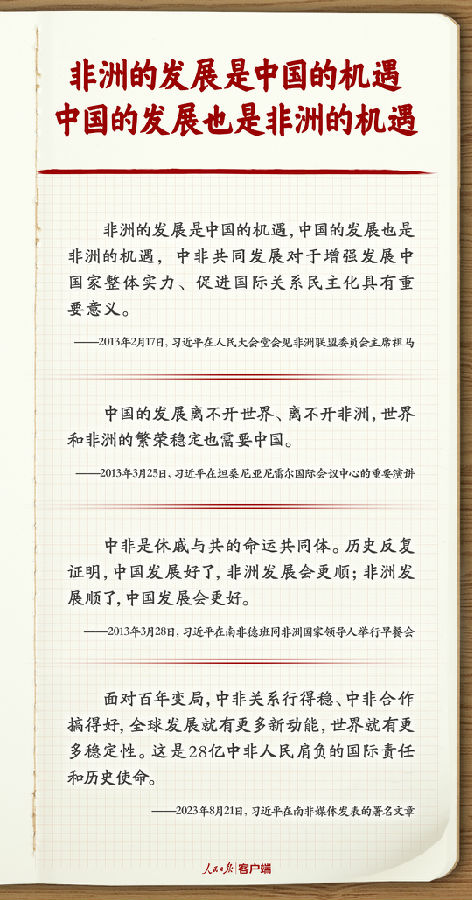 非洲的发展是中国的机遇
中国的发展也是非洲的机遇
非洲的发展是中国的机遇，中国的发展也是
非洲的机遇，中非共同发展对于增强发展中
国家整体实力、促进国际关系民主化具有重
要意义。
——2013年2月17日，习近平在人民大会堂会见非洲联盟委员会主席祖马
中国的发展离不开世界、离不开非洲，世界
和非洲的繁荣稳定也需要中国。
——2013年3月25日，习近平在坦桑尼亚尼雷尔国际会议中心的重要演讲
中非是休戚与共的命运共同体。历史反复
证明，中国发展好了，非洲发展会更顺；非洲发
展顺了，中国发展会更好。
——2013年3月28日，习近平在南非德班同非洲国家领导人举行早餐会
面对百年变局，中非关系行得稳、中非合作
搞得好，全球发展就有更多新动能，世界就有更
多稳定性。这是28亿中非人民肩负的国际责任
和历史使命。
——2023年8月21日，习近平在南非媒体发表的署名文章
人民日报 客户端